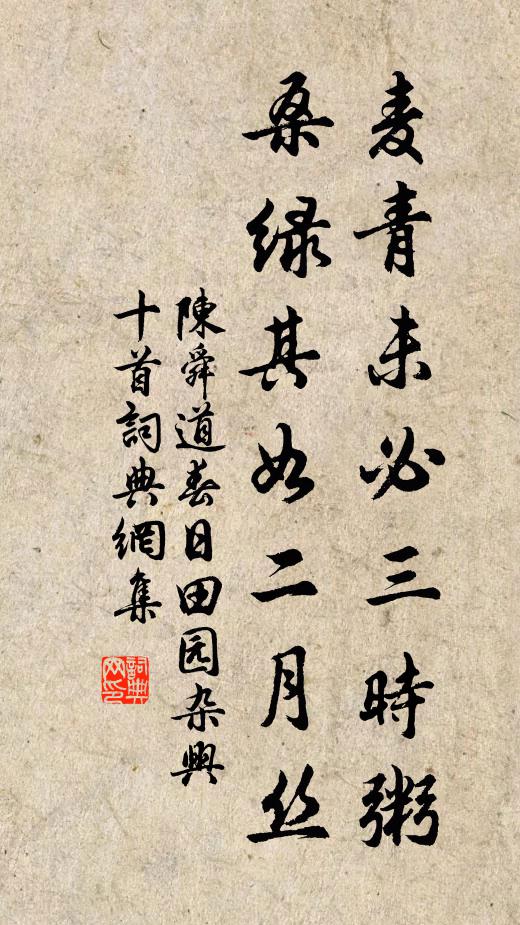 麦青未必三時粥
桑绿其如二月丝
陳舜道春日田园杂興
十首詞典網集
詞典
网印